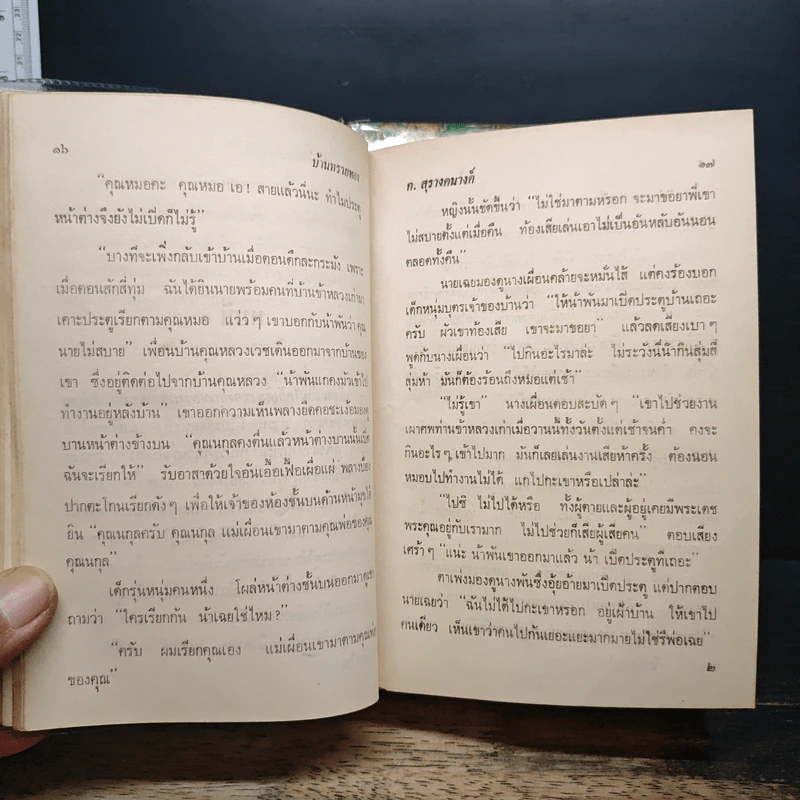 ๑๖
บ้านทรายทอง
“คุณหมอคะ คุณหมอ เอ! สายแล้วนี่นะ ทำไมประตู
หน้าต่างจึงยังไม่เปิดก็ไม่รู้”
“บางทีจะเพิ่งกลับเข้าบ้านเมื่อตอนดึกละกระมัง เพราะ
เมื่อตอนสักสี่ทุ่ม ฉันได้ยินนายพร้อมคนที่บ้านข้าหลวงเก่ามา
เคาะประตูเรียกตามคุณหมอ แว่ว ๆ เขาบอกกับน้าพันว่าคุณ
นายไม่สบาย” เพื่อนบ้านคุณหลวงเวชเดินออกมาจากบ้านของ
เขา ซึ่งอยู่ติดต่อไปจากบ้านคุณหลวง “น้าพันแกคงมัวเข้าไป
ทำงานอยู่หลังบ้าน” เขาออกความเห็นพลางยืดคอชะเง้อมอง
บานหน้าต่างข้างบน “คุณนกุลคงตื่นแล้วหน้าต่างบานนั้นเปิด
ฉันจะเรียกให้” รับอาสาด้วยใจอันเอื้อเฟื้อเผื่อแผ่ พลางป้อง
ปากตะโกนเรียกดัง ๆ เพื่อให้เจ้าของห้องชั้นบนด้านหน้ามุขได้
ยิน “คุณนกุลครับ คุณนกุล แม่เผื่อนเขามาตามคุณพ่อของคุณ
คุณนกุล”
เด็กรุ่นหนุ่มคนหนึ่ง โผล่หน้าต่างชั้นบนออกมาดู
ถามว่า “ใครเรียกกัน น้าเฉยใช่ไหม?”
“ครับ ผมเรียกคุณเอง แม่เผื่อนเขามาตามคุณพ่อ
ของคุณ”
ก. สุรางคนางค์
๑๗
หญิงนั้นขัดขึ้นว่า “ไม่ใช่มาตามหรอก จะมาขอยาพี่เขา
ไม่สบายตั้งแต่เมื่อคืน ท้องเสียเล่นเอาไม่เป็นอันหลับอันนอน
ตลอดทั้งคืน”
นายเฉยมองดูนางเผื่อนคล้ายจะหมั่นไส้ แต่คงร้องบอก
เด็กหนุ่มบุตรเจ้าของบ้านว่า “ให้น้าพันมาเปิดประตูบ้านเถอะ
ครับ ผัวเขาท้องเสีย เขาจะมาขอยา” แล้วลดเสียงเบา ๆ
พูดกับนางเผื่อนว่า “ไปกินอะไรมาล่ะ ไม่ระวังนี่น้ากินสุ่มสี่
สุ่มห้า มันก็ต้องร้อนถึงหมอแต่เช้า”
“ไม่รู้เขา” นางเผื่อนตอบสะบัด ๆ “เขาไปช่วยงาน
เผาศพท่านข้าหลวงเก่าเมื่อวานนี้ทั้งวันตั้งแต่เช้าจนค่ำ คงจะ
กินอะไร ๆ เข้าไปมาก มันก็เลยเล่นงานเสียห้าครั้ง ต้องนอน
หมอบไปทำงานไม่ได้ แกไปกะเขาหรือเปล่าล่ะ”
“ไปซิ ไม่ไปได้หรือ ทั้งผู้ตายและผู้อยู่เคยมีพระเดช
พระคุณอยู่กับเรามาก ไม่ไปช่วยก็เสียผู้เสียคน” ตอบเสียง
เศร้า ๆ “แน่ะ น้าพันเขาออกมาแล้ว น้า เปิดประตูทีเถอะ”
ตาเพ่งมองดูนางพันซึ่งอุ้ยอ้ายมาเปิดประตู แต่ปากตอบ
นายเฉยว่า “ฉันไม่ได้ไปกะเขาหรอก อยู่เฝ้าบ้าน ให้เขาไป
คนเดียว เห็นเขาว่าคนไปกันเยอะแยะมากมายไม่ใช่รึพ่อเฉย”
๒